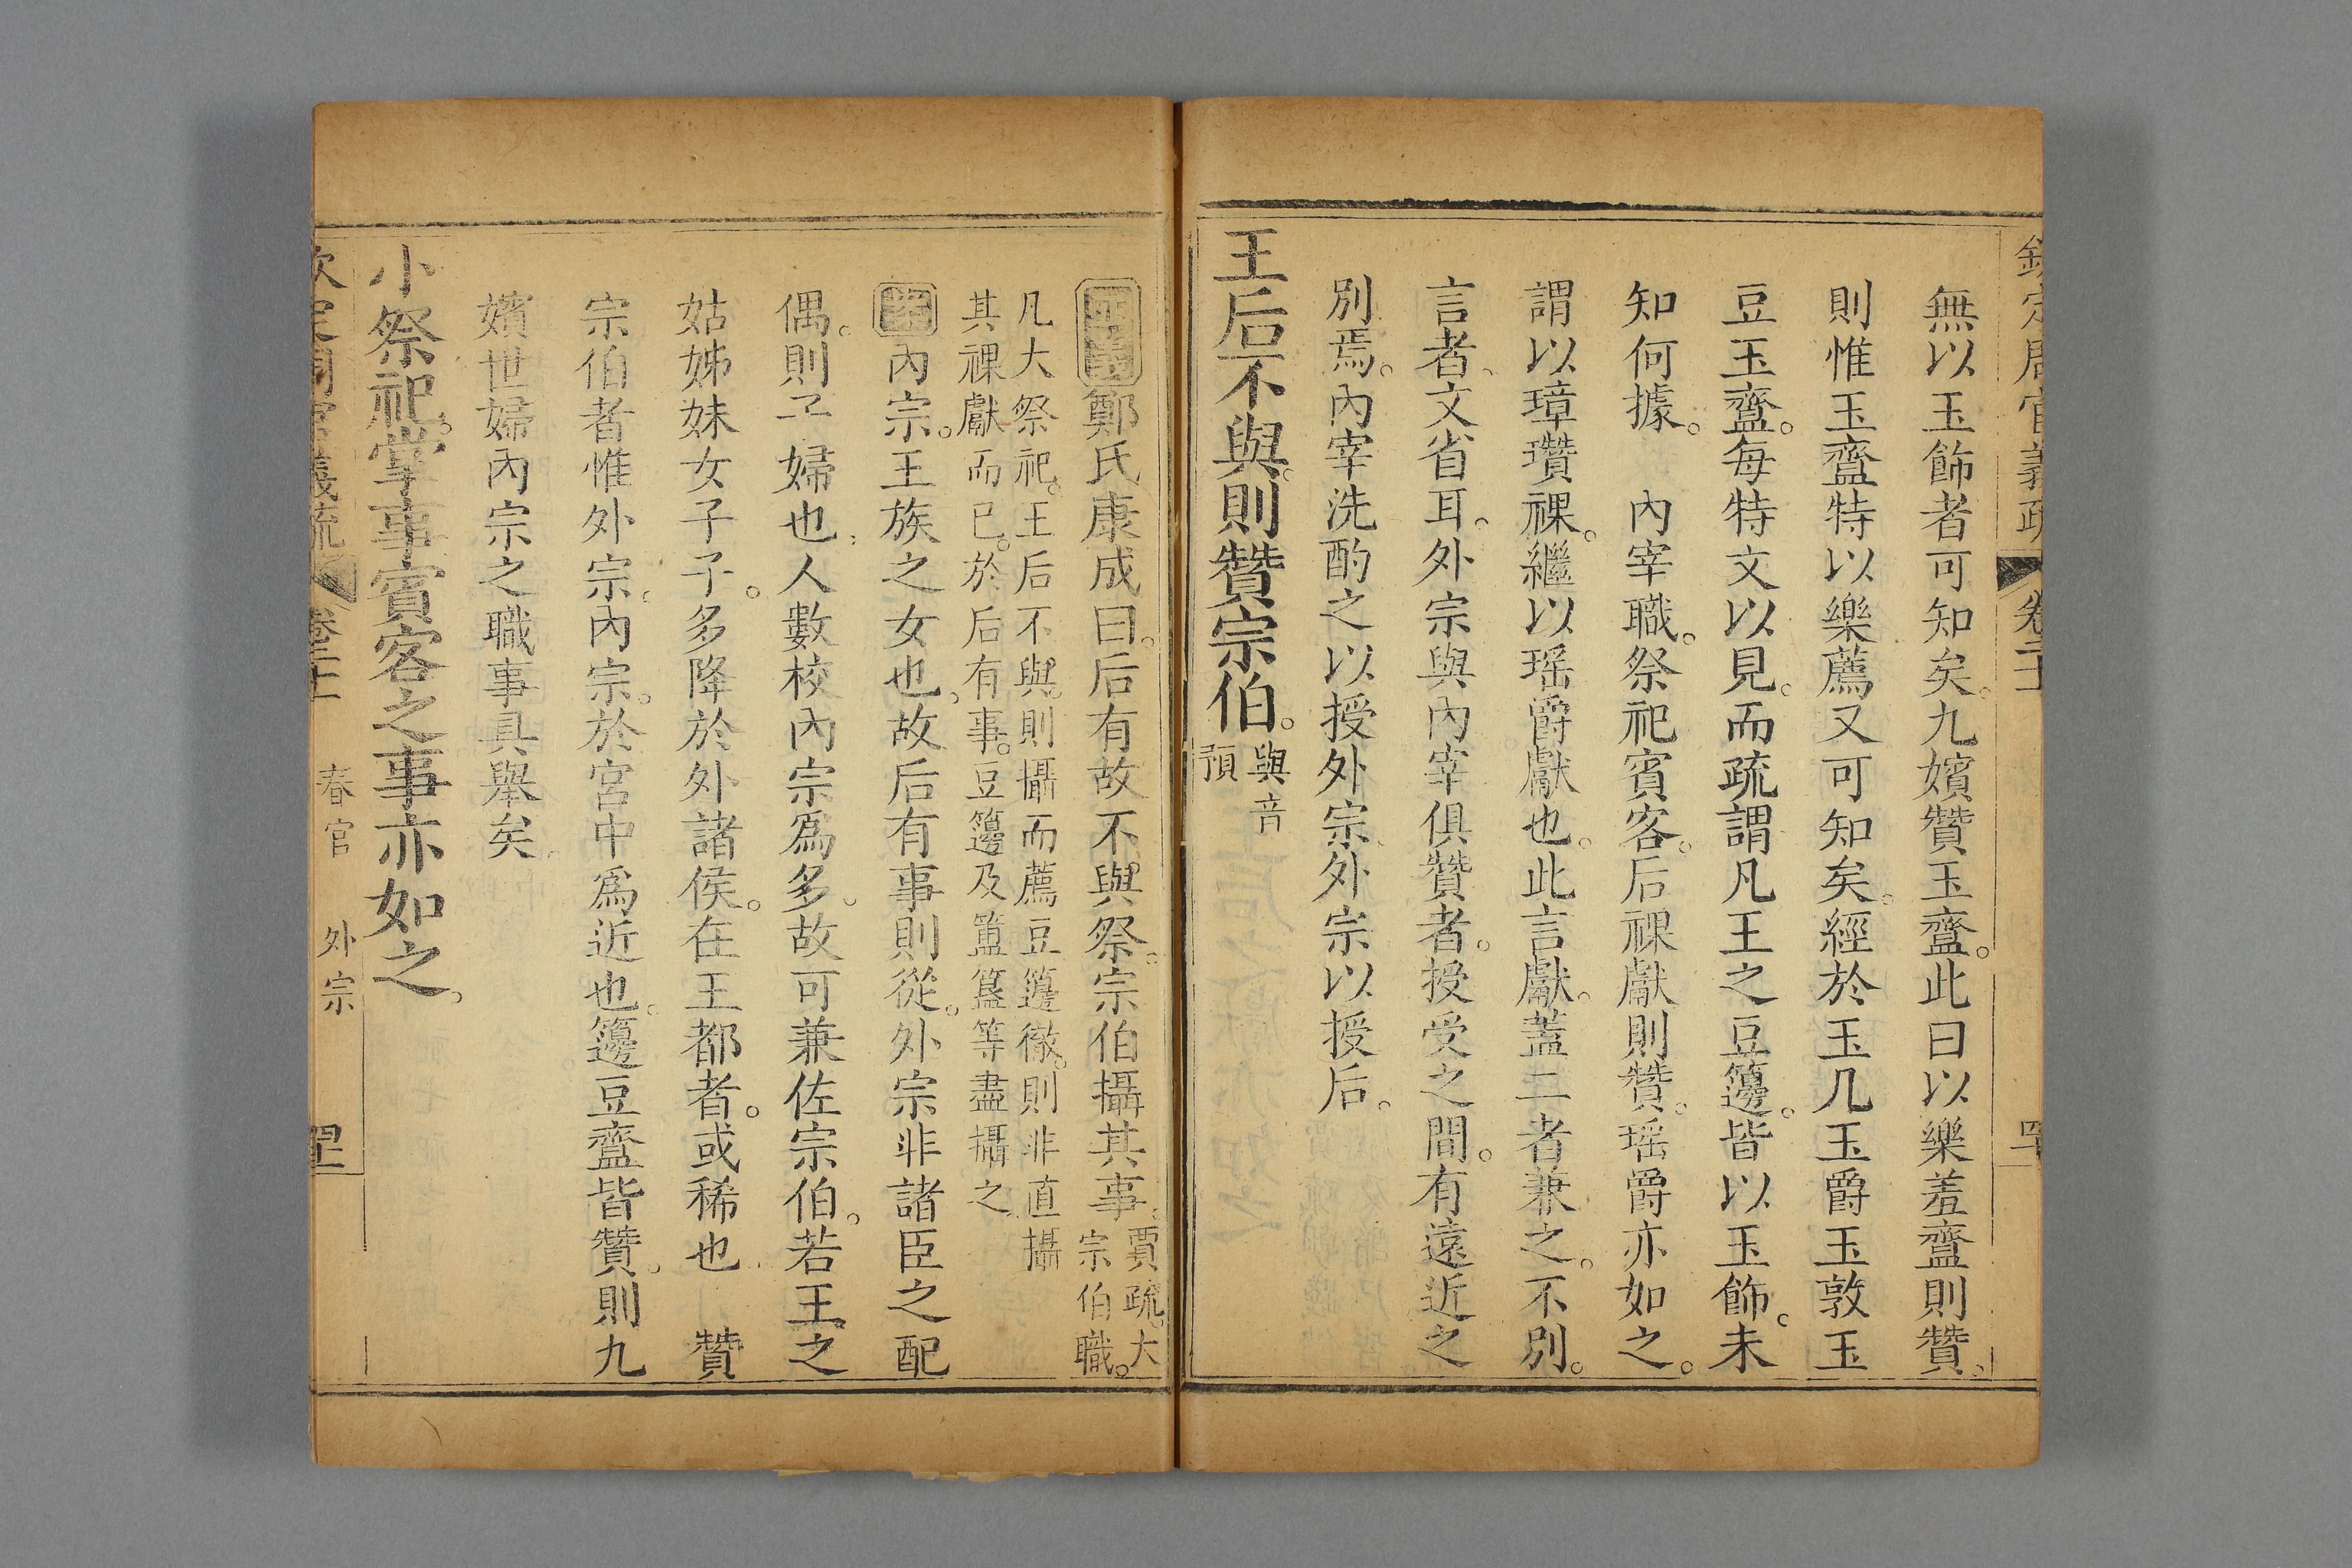 欽定周官義疏 卷二十 四十
無以玉飾者可知矣。九嬪贊玉齍。此曰以樂羞齍則贊。
則惟玉齍特以樂薦又可知矣。經於玉几玉爵玉敦玉
豆玉齍。每特文以見。而疏謂凡王之豆籩。皆以玉飾。未
知何據。　內宰職。祭祀賓客。后祼獻則贊。瑤爵亦如之。
謂以璋瓚祼。繼以瑤爵獻也。此言獻。蓋二者兼之。不別
言者。文省耳。外宗與內宰俱贊者。授受之間。有遠近之
別焉。內宰洗酌之以授外宗。外宗以授后。
王后不與。則贊宗伯。與音預
正義鄭氏康成曰。后有故不與祭。宗伯攝其事。賈疏。大宗伯職。
凡大祭祀。王后不與。則攝而薦豆籩徹。則非直攝
其祼獻而已。於后有事。豆籩及簠簋等盡攝之。
案內宗。王族之女也。故后有事則從。外宗非諸臣之配
偶。則子婦也。人數校內宗爲多。故可兼佐宗伯。若王之
姑姊妹女子子。多降於外諸侯。在王都者。或稀也　贊
宗伯者惟外宗。內宗。於宮中爲近也。籩豆齍皆贊。則九
嬪世婦內宗之職事具舉矣。
小祭祀。掌事賓客之事亦如之。
欽定周官義疏 卷二十 春官 外宗 四十一